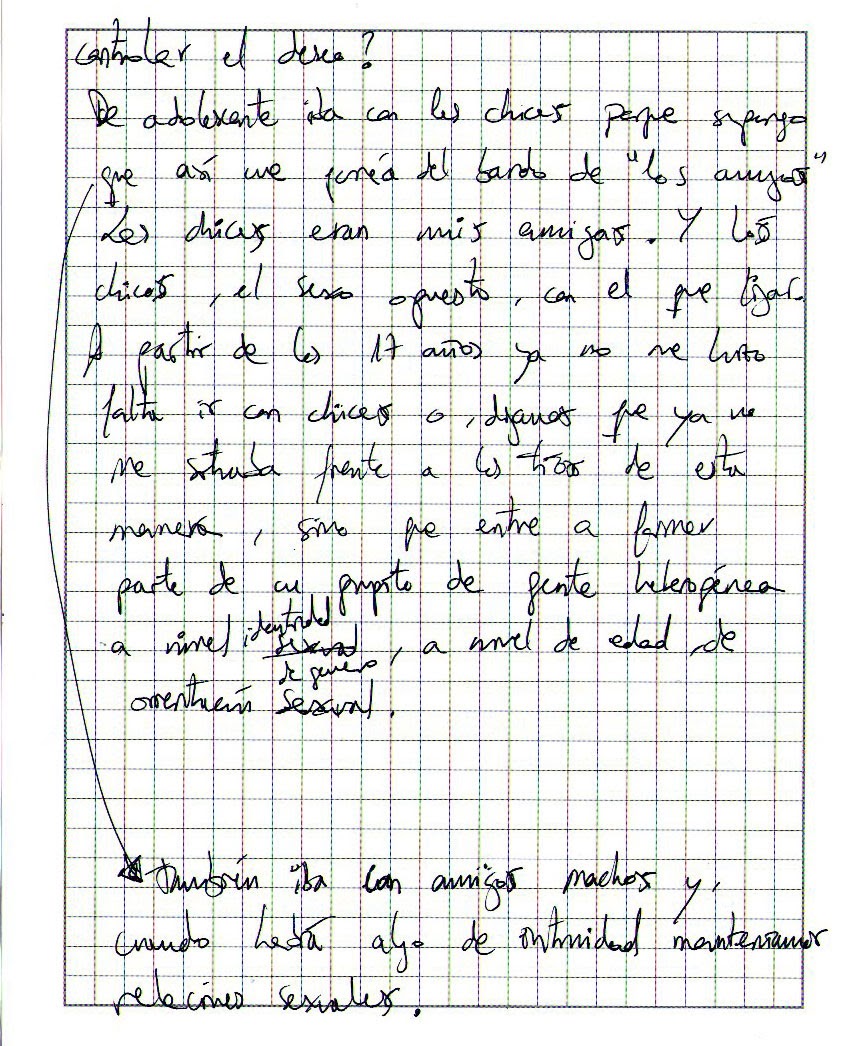 controlar el deseo?
De adolescente iba con las chicas porque supongo
que así me ponía del bando de "los amigos"
Las chicas eran mis amigas. Y los
chicos, el sexo opuesto, con el que ligar.
A partir de los 17 años ya no me hizo
falta ir con chicas o, digamos que ya no
me situaba frente a los tíos de esta
manera, sino que entre a formar
parte de un grupito de gente heterogénea
a nivel identidad sexual de genero, a nivel de edad, de
orientación sexual.
También iba con amigos machos y,
cuando había algo de intimidad manteníamos
relaciones sexuales.